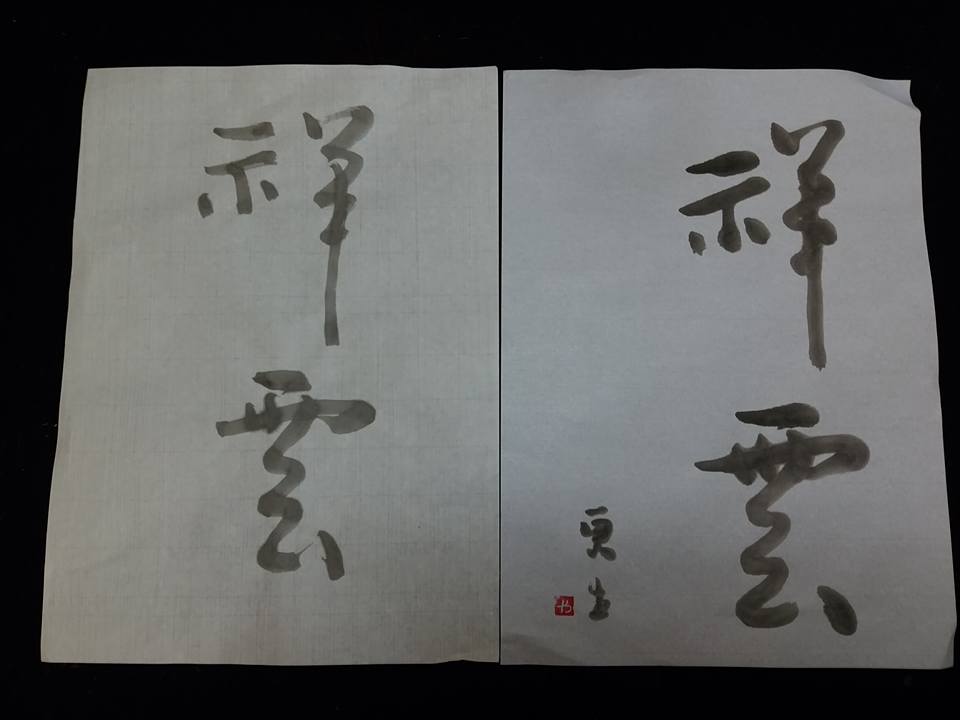 祥雲
祥雲
更生